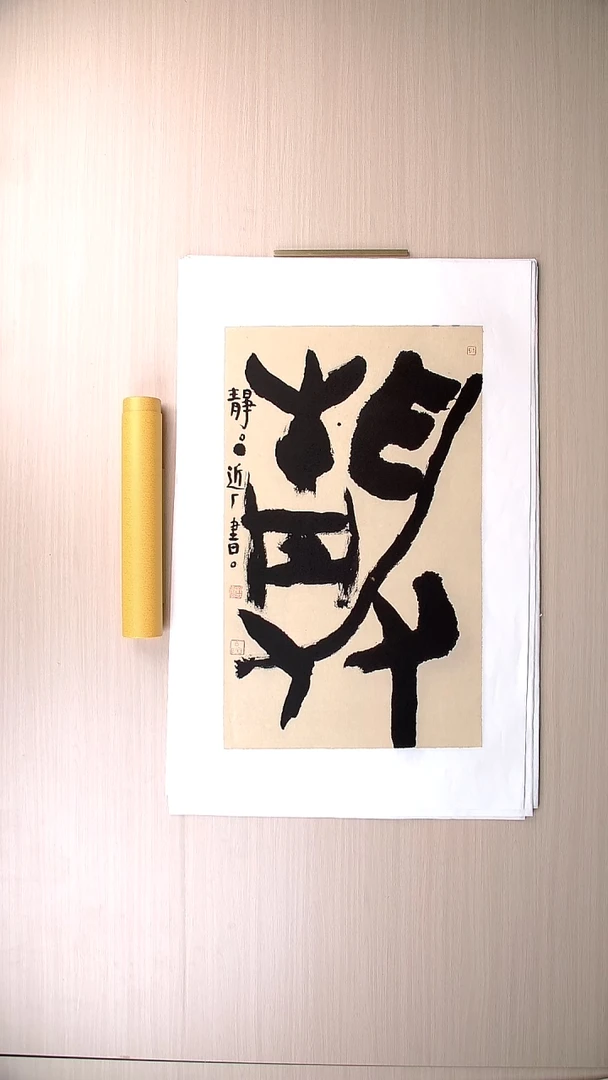 靜
靜。近厂書。